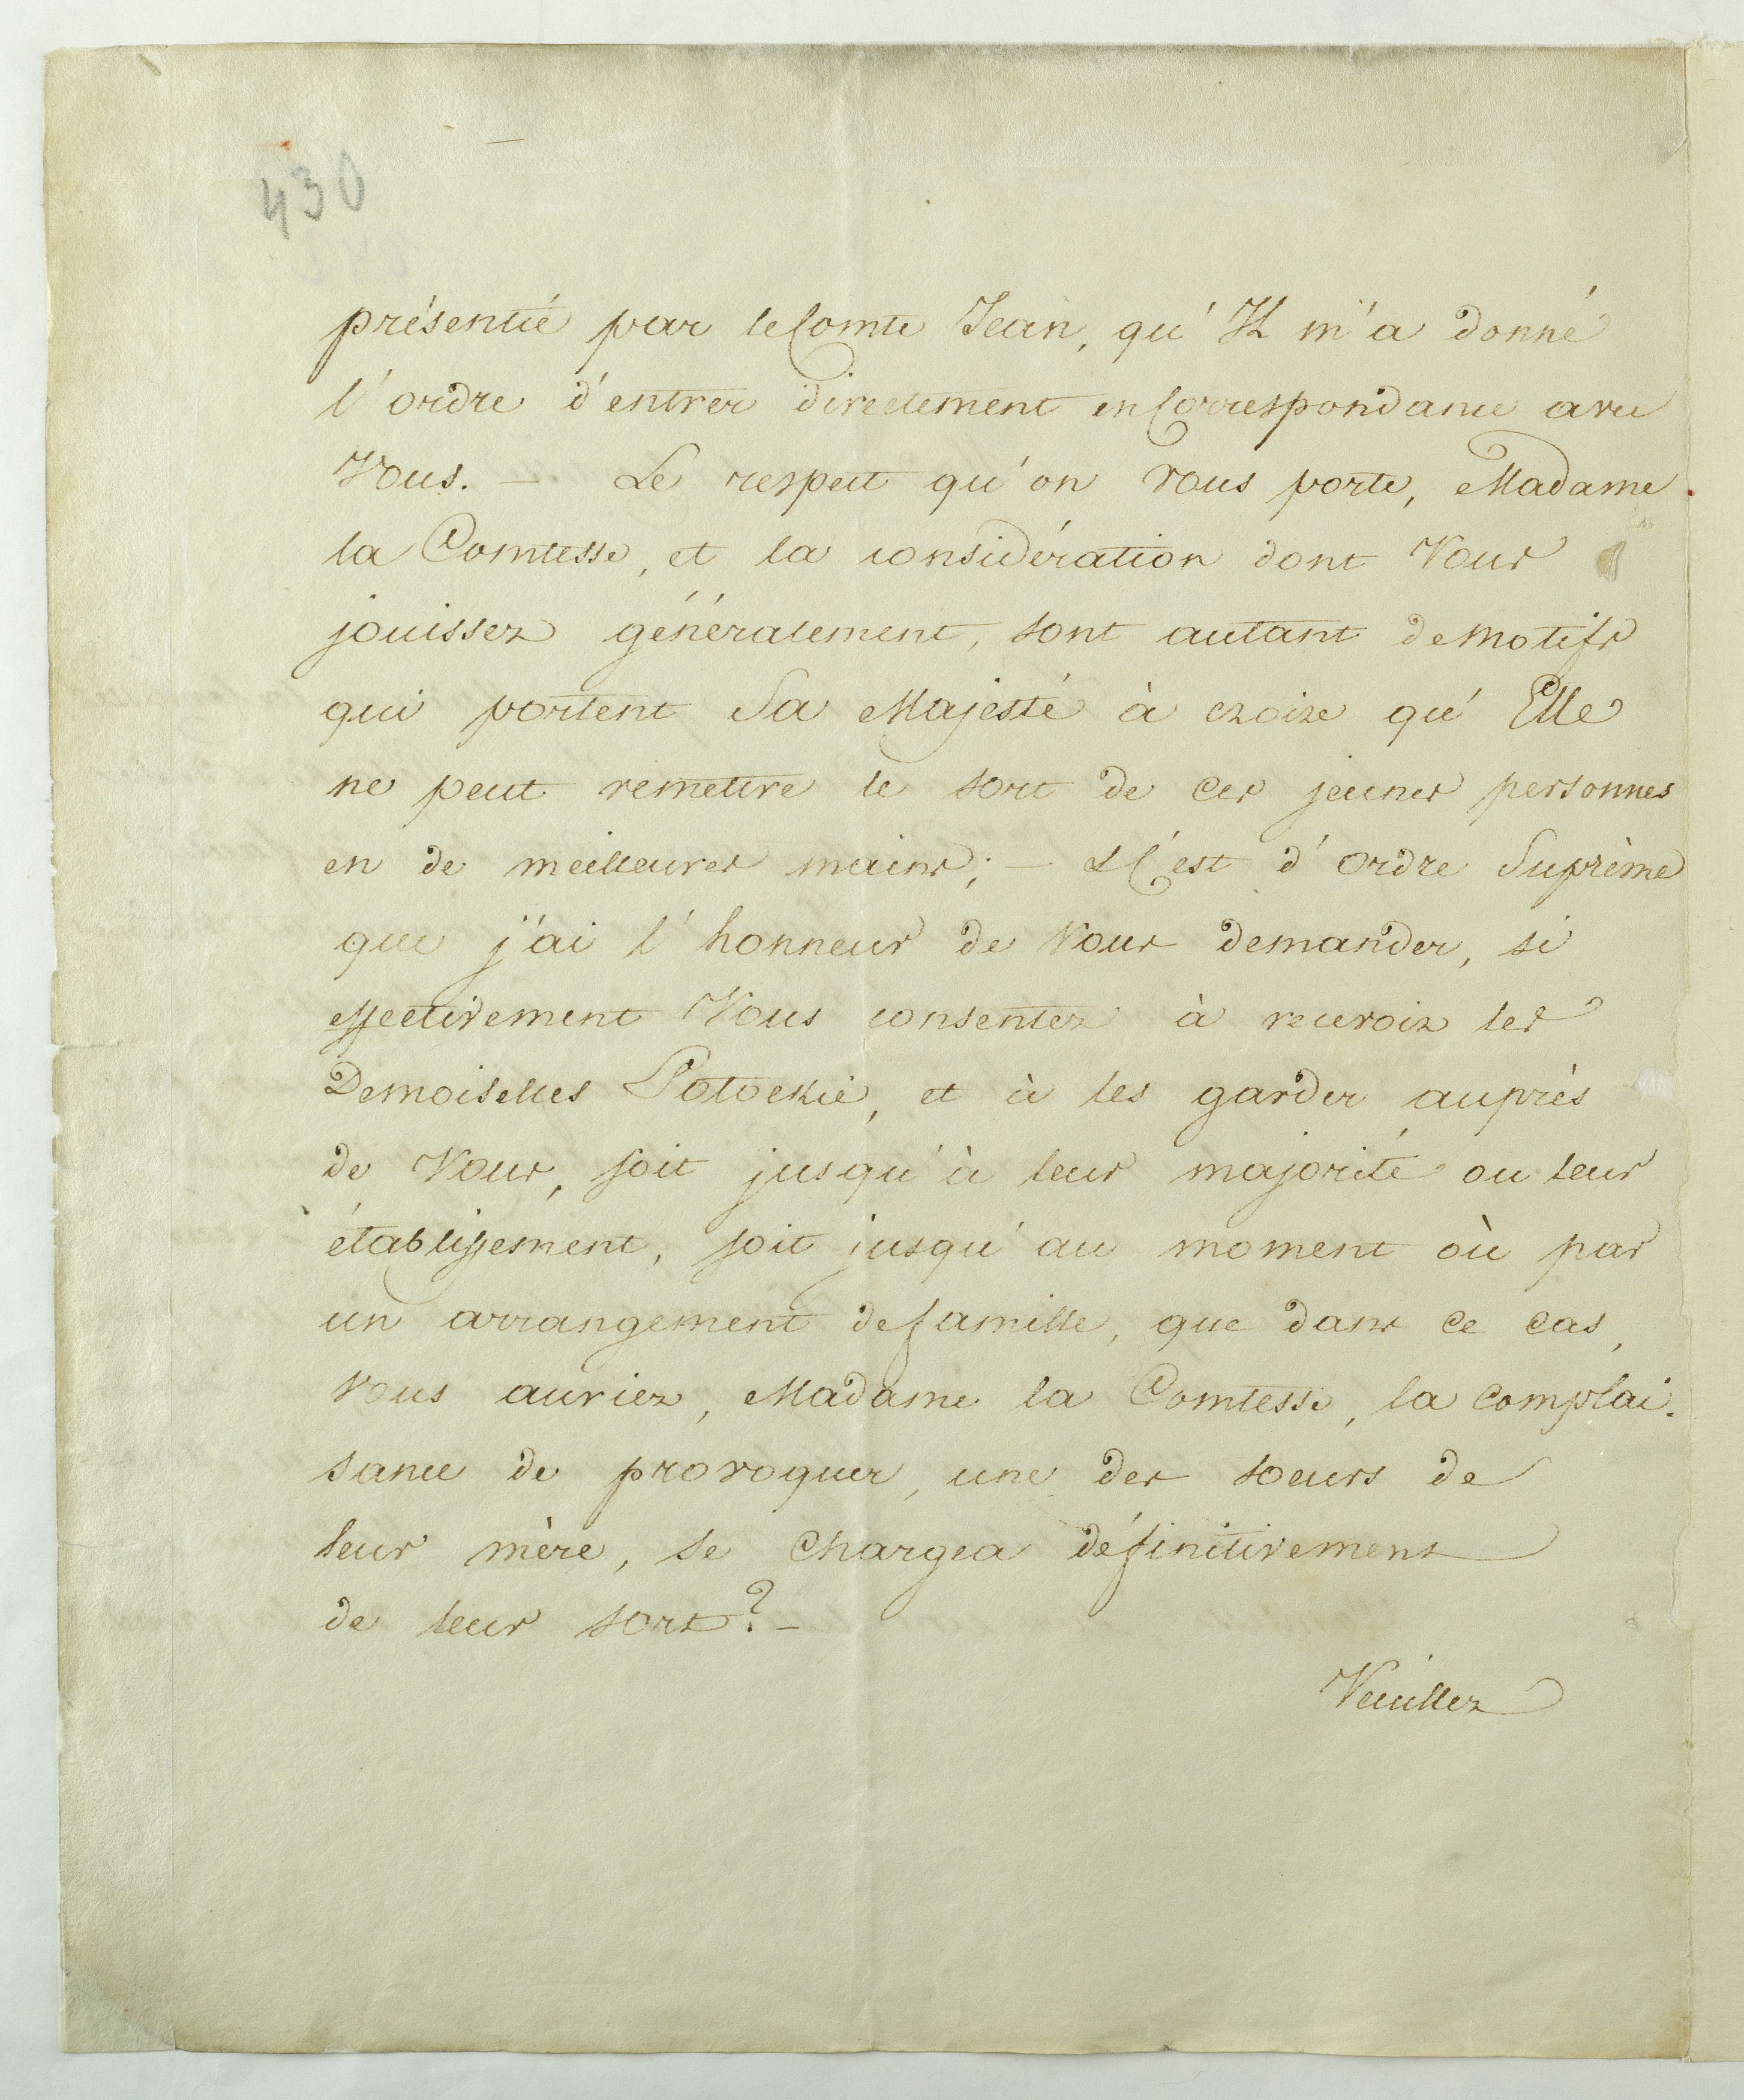 430
présenté par le Comte Jean, qu'Il m'a donné
l'ordre d'entrer directement en Correspondance avec
Vous. — Le respect qu'on Vous porte, Madame
la Comtesse, et la considération dont Vous
jouissez généralement, sont autant de motifs
qui portent Sa Majesté à croire qu'Elle
ne peut remettre le sort de ces jeunes personnes
en de meilleures mains; — C'est d'ordre Suprème
que j'ai l'honneur de Vous demander, si
effectivement Vous consentez à recevoir les
Demoiselles Potockie, et à les garder auprès
de Vous, soit jusqu'à leur majorité ou leur
établissement, soit jusqu'au moment où par
un arrangement de famille, que dans ce cas,
Vous auriez, Madame la Comtesse, la complai-
sance de provoquer, une des soeurs de
leur mère, se chargea définitivement
de leur sort? —
Veuillez